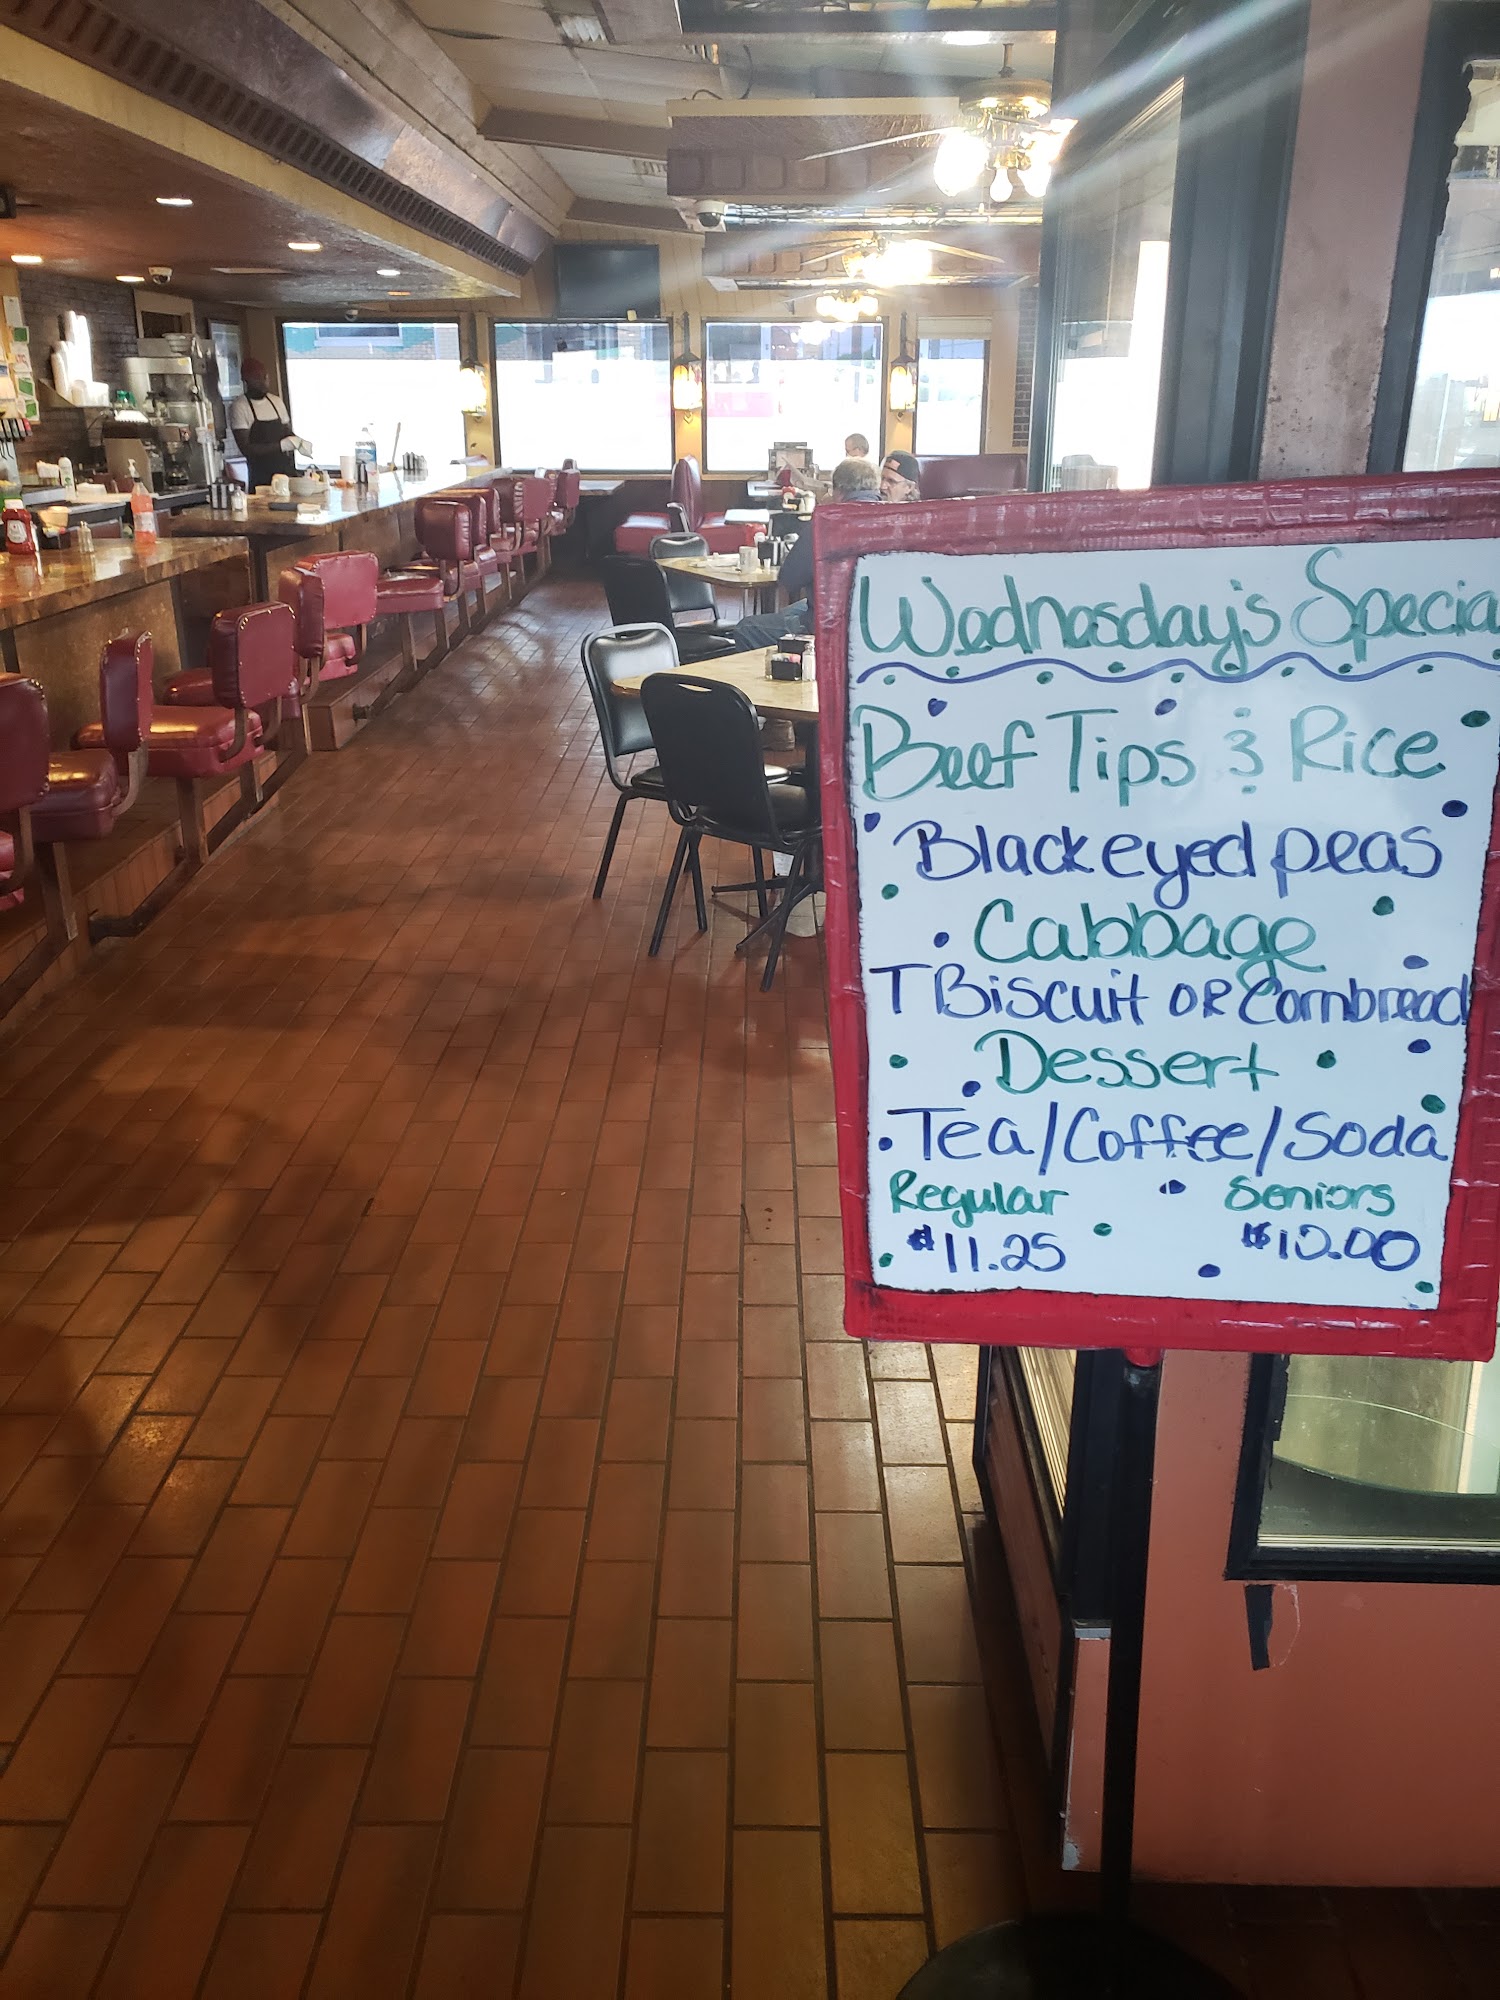 Wednesday's Specia
Beef Tips & Rice
Blackeyed peas
Cabbage
T Biscuit OR Cornbread
Dessert
Tea/Coffee/Soda
Regular Seniors
$11.25 $10.00